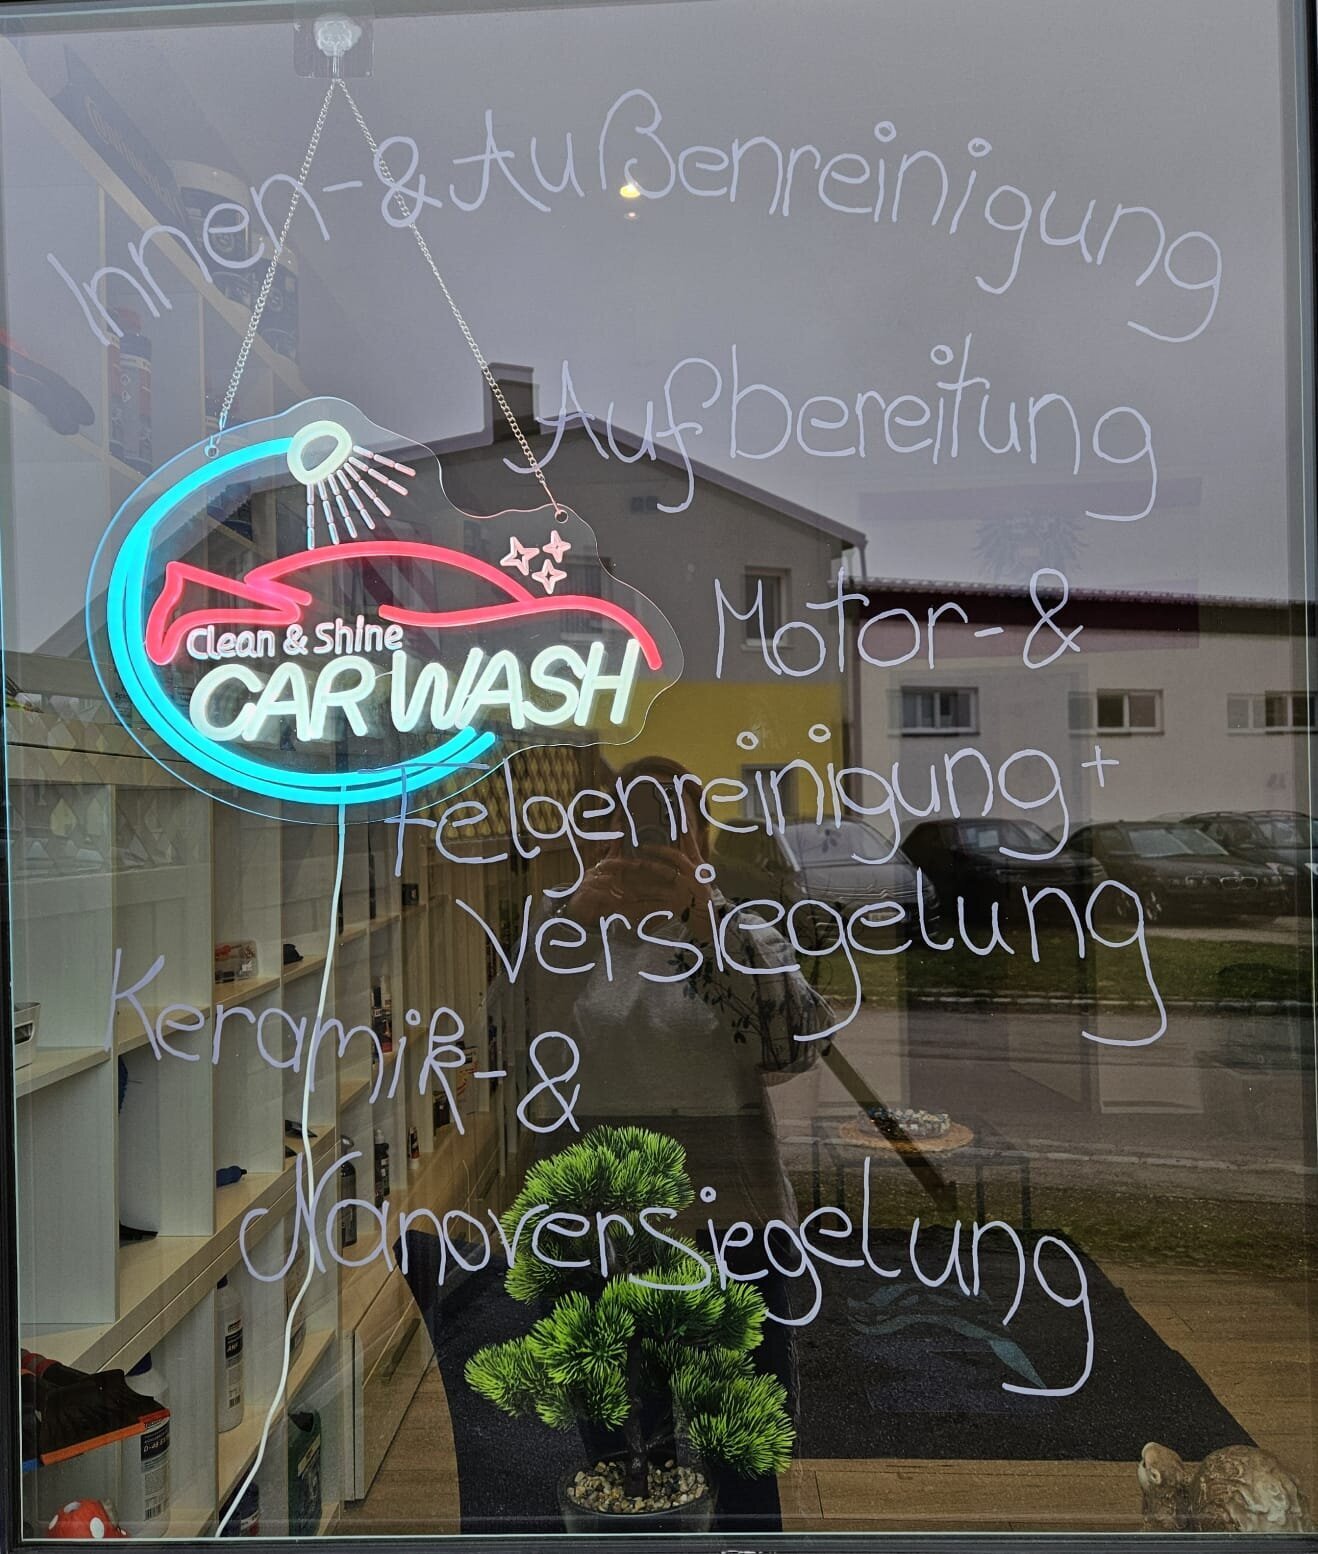 Innen-&Außenreinigung
Aufbereitung
Clean & Shine
CAR WASH
Motor-&
Felgenreinigung+
Versiegelung
Keramik-&
Nanoversiegelung